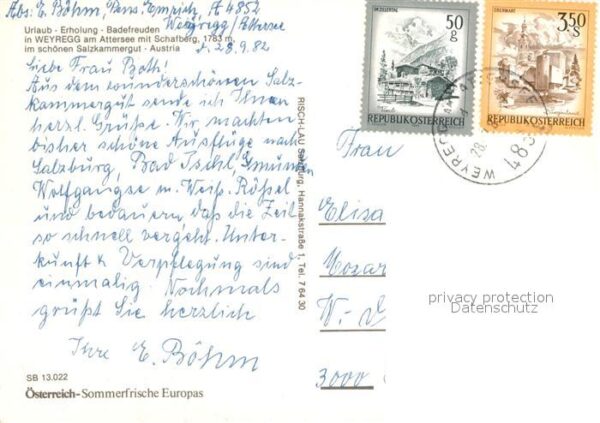 Abs: E. Böhm, Pens. Emrich, A 4852
Weyregg/Attersee
Urlaub · Erholung · Badefreuden
in WEYREGG am Attersee mit Schafberg, 1783 m,
im schönen Salzkammergut · Austria
28.9.82
Liebe Frau Both!
Aus dem wunderschönen Salz-
kammergut sende ich Ihnen
herzl. Grüße. Wir machten
bisher schöne Ausflüge nach
Salzburg, Bad Ischl, Gmunden
Wolfgangse m. Weiß. Rößel
und bedauern, daß die Zeit
so schnell vergeht. Unter-
kunft & Verpflegung sind
einmalig. Nochmals
grüßt Sie herzlich
Ihre E. Böhm
SB 13.022
Österreich-Sommerfrische Europas
RISCH-LAU Salzburg, Hannakstraße 1, Tel. 7 64 30
ZILLERTAL
50
g
Tirol
REPUBLIK ÖSTERREICH
OBERWART
3,50
S
Burgenland
REPUBLIK ÖSTERREICH
WEYREGG
28.
483
Frau
Elisa
Mozar
W.-
3000
privacy protection
Datenschutz